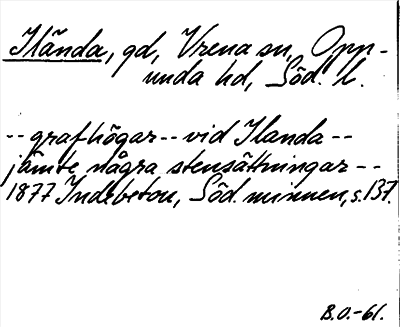 Ilända, gd, Vrena sn, Opp-
unda hd, Söd. l.
-- grafhögar -- vid Ilanda --
jämte några stensättningar --
1877 Indebetou, Söd. minnen, s. 137.
B.O.-61.